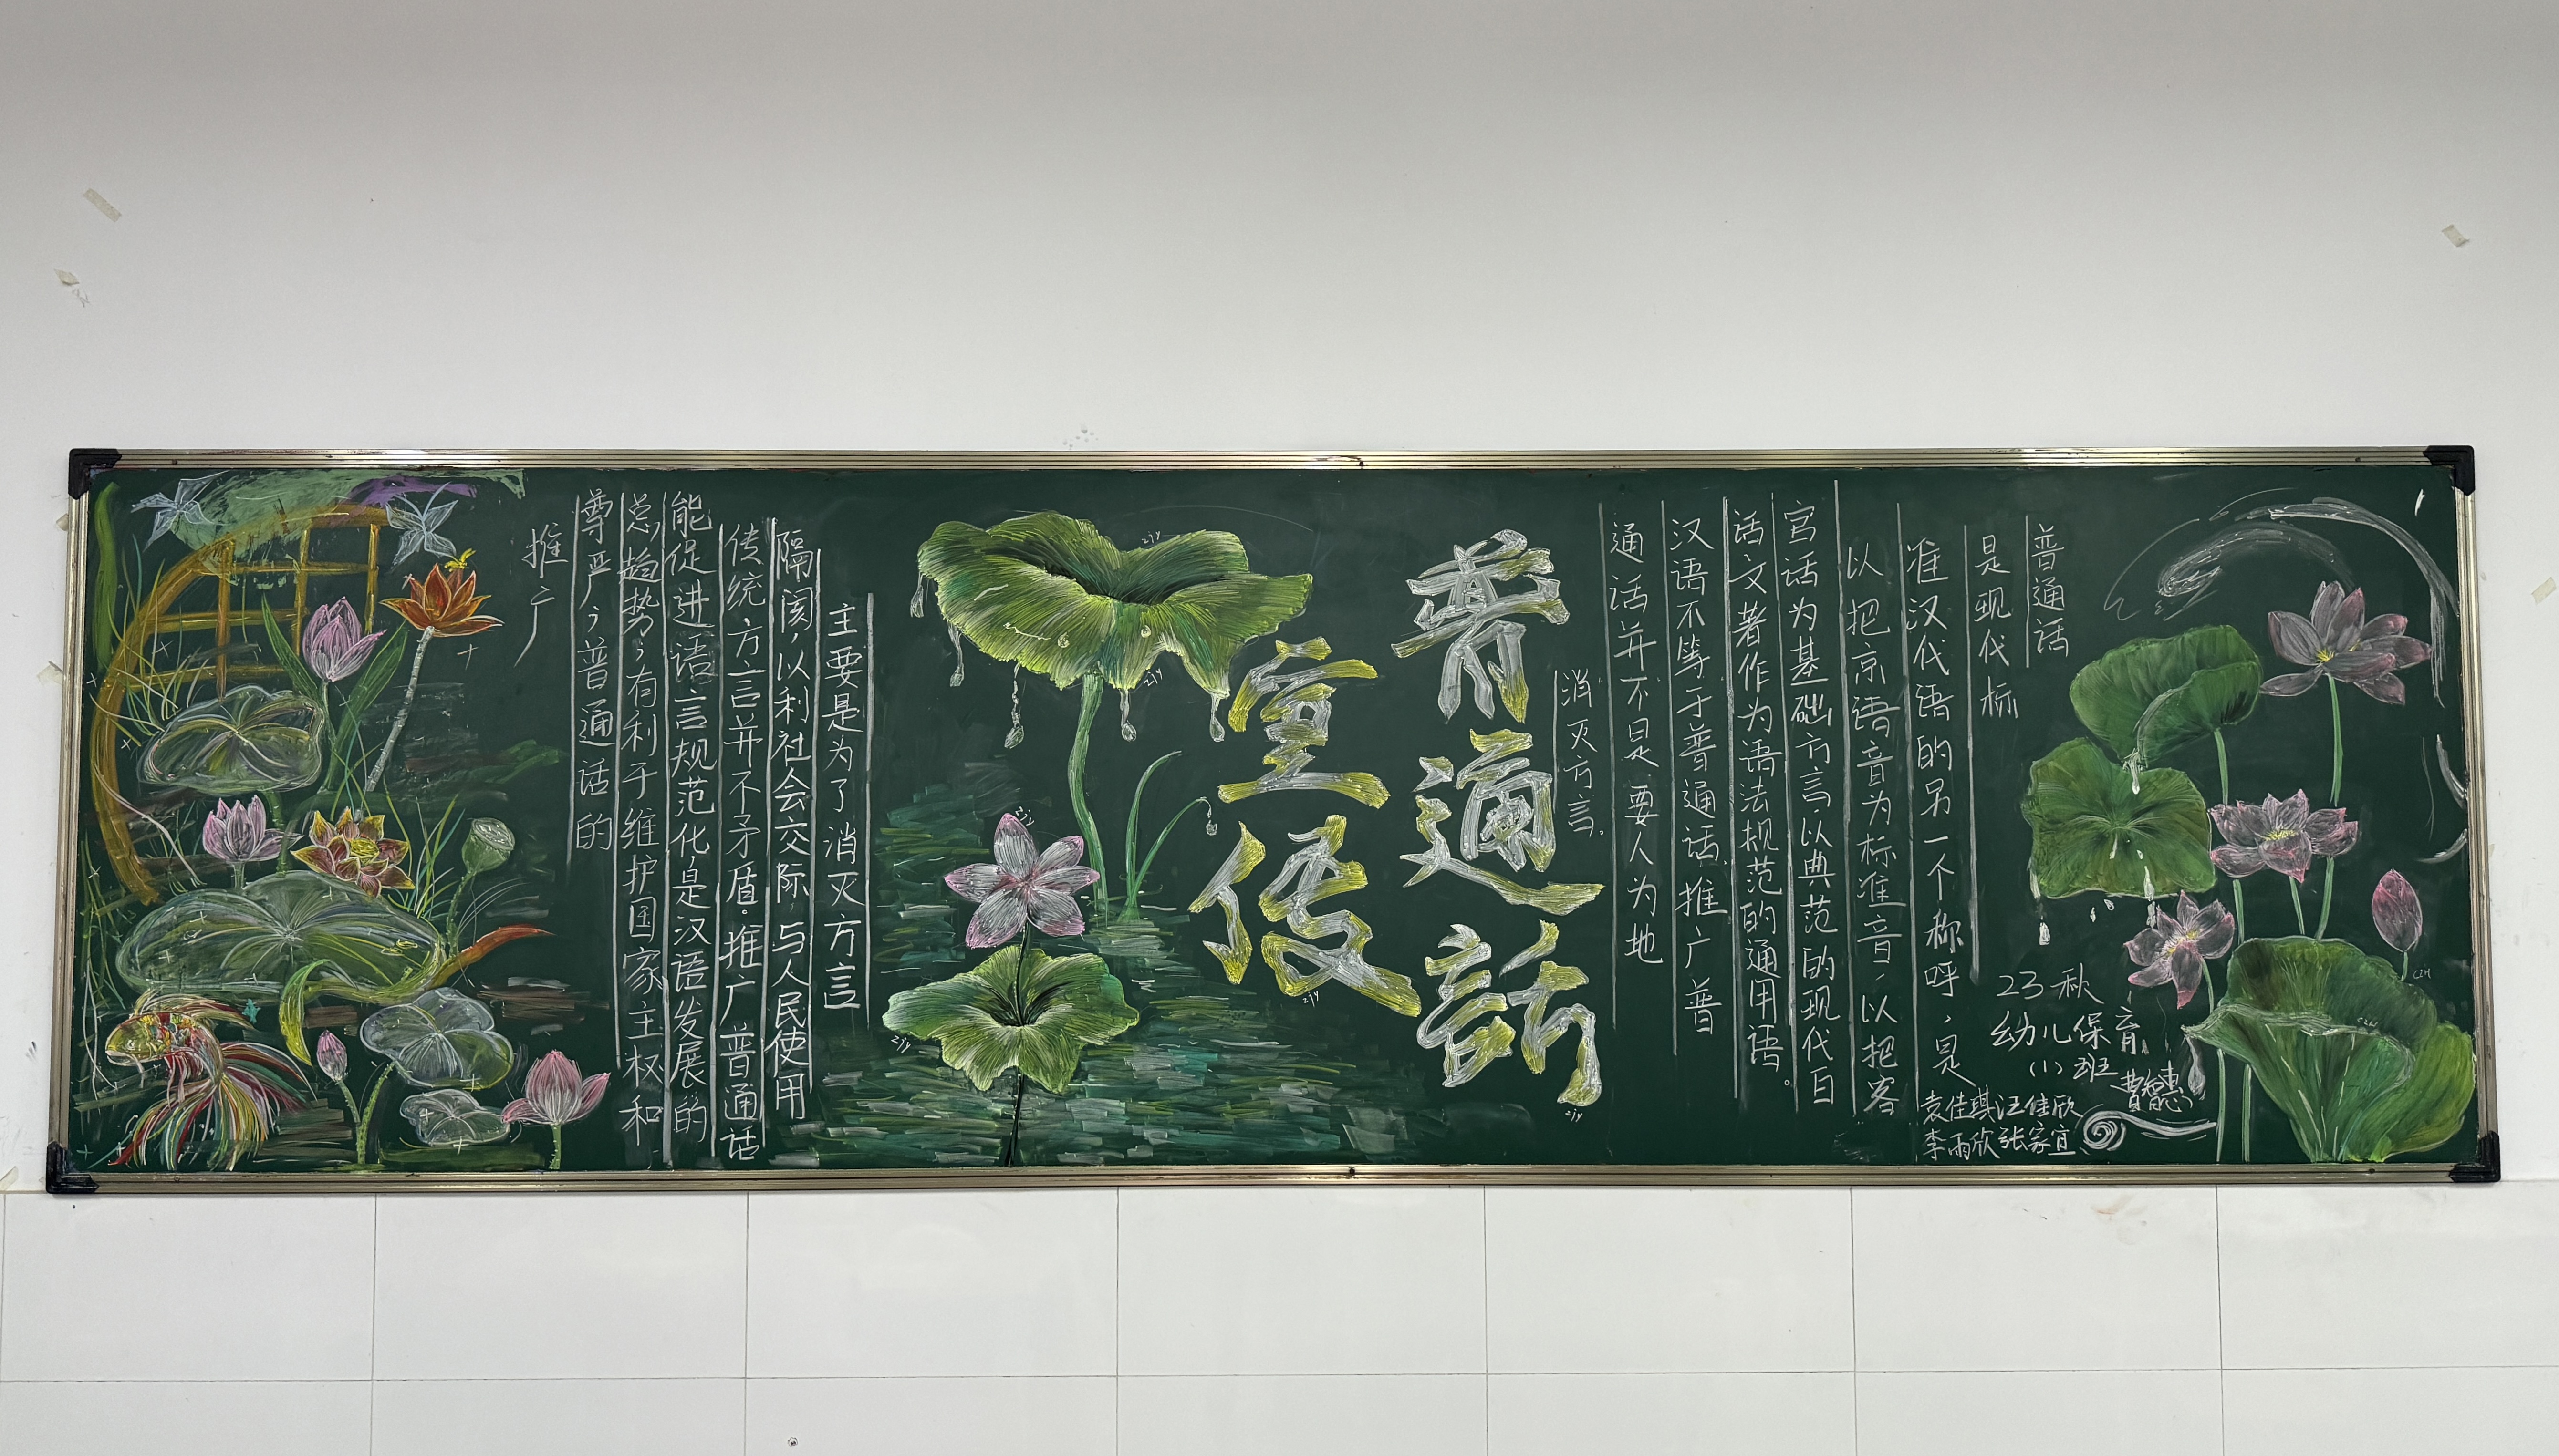 普通话
是现代标
准汉代语的另一个称呼，是
以把京语音为标准音，以把客
宫话为基础方言，以典范的现代白
话文著作为语法规范的通用语。
汉语不等于普通话，推广普
通话并不是要人为地
消灭方言。
普通話
宣传
主要是为了消灭方言
隔阂，以利社会交际，与人民使用
传统方言并不矛盾。推广普通话
能促进语言规范化是汉语发展的
总趋势，有利于维护国家主权和
尊严，普通话的
推广
23秋
幼儿保育
(1)班
袁佳琪 汪佳欣
李雨欣 张家宜
zjy
zjy
zjy
zjy
zjy
zjy